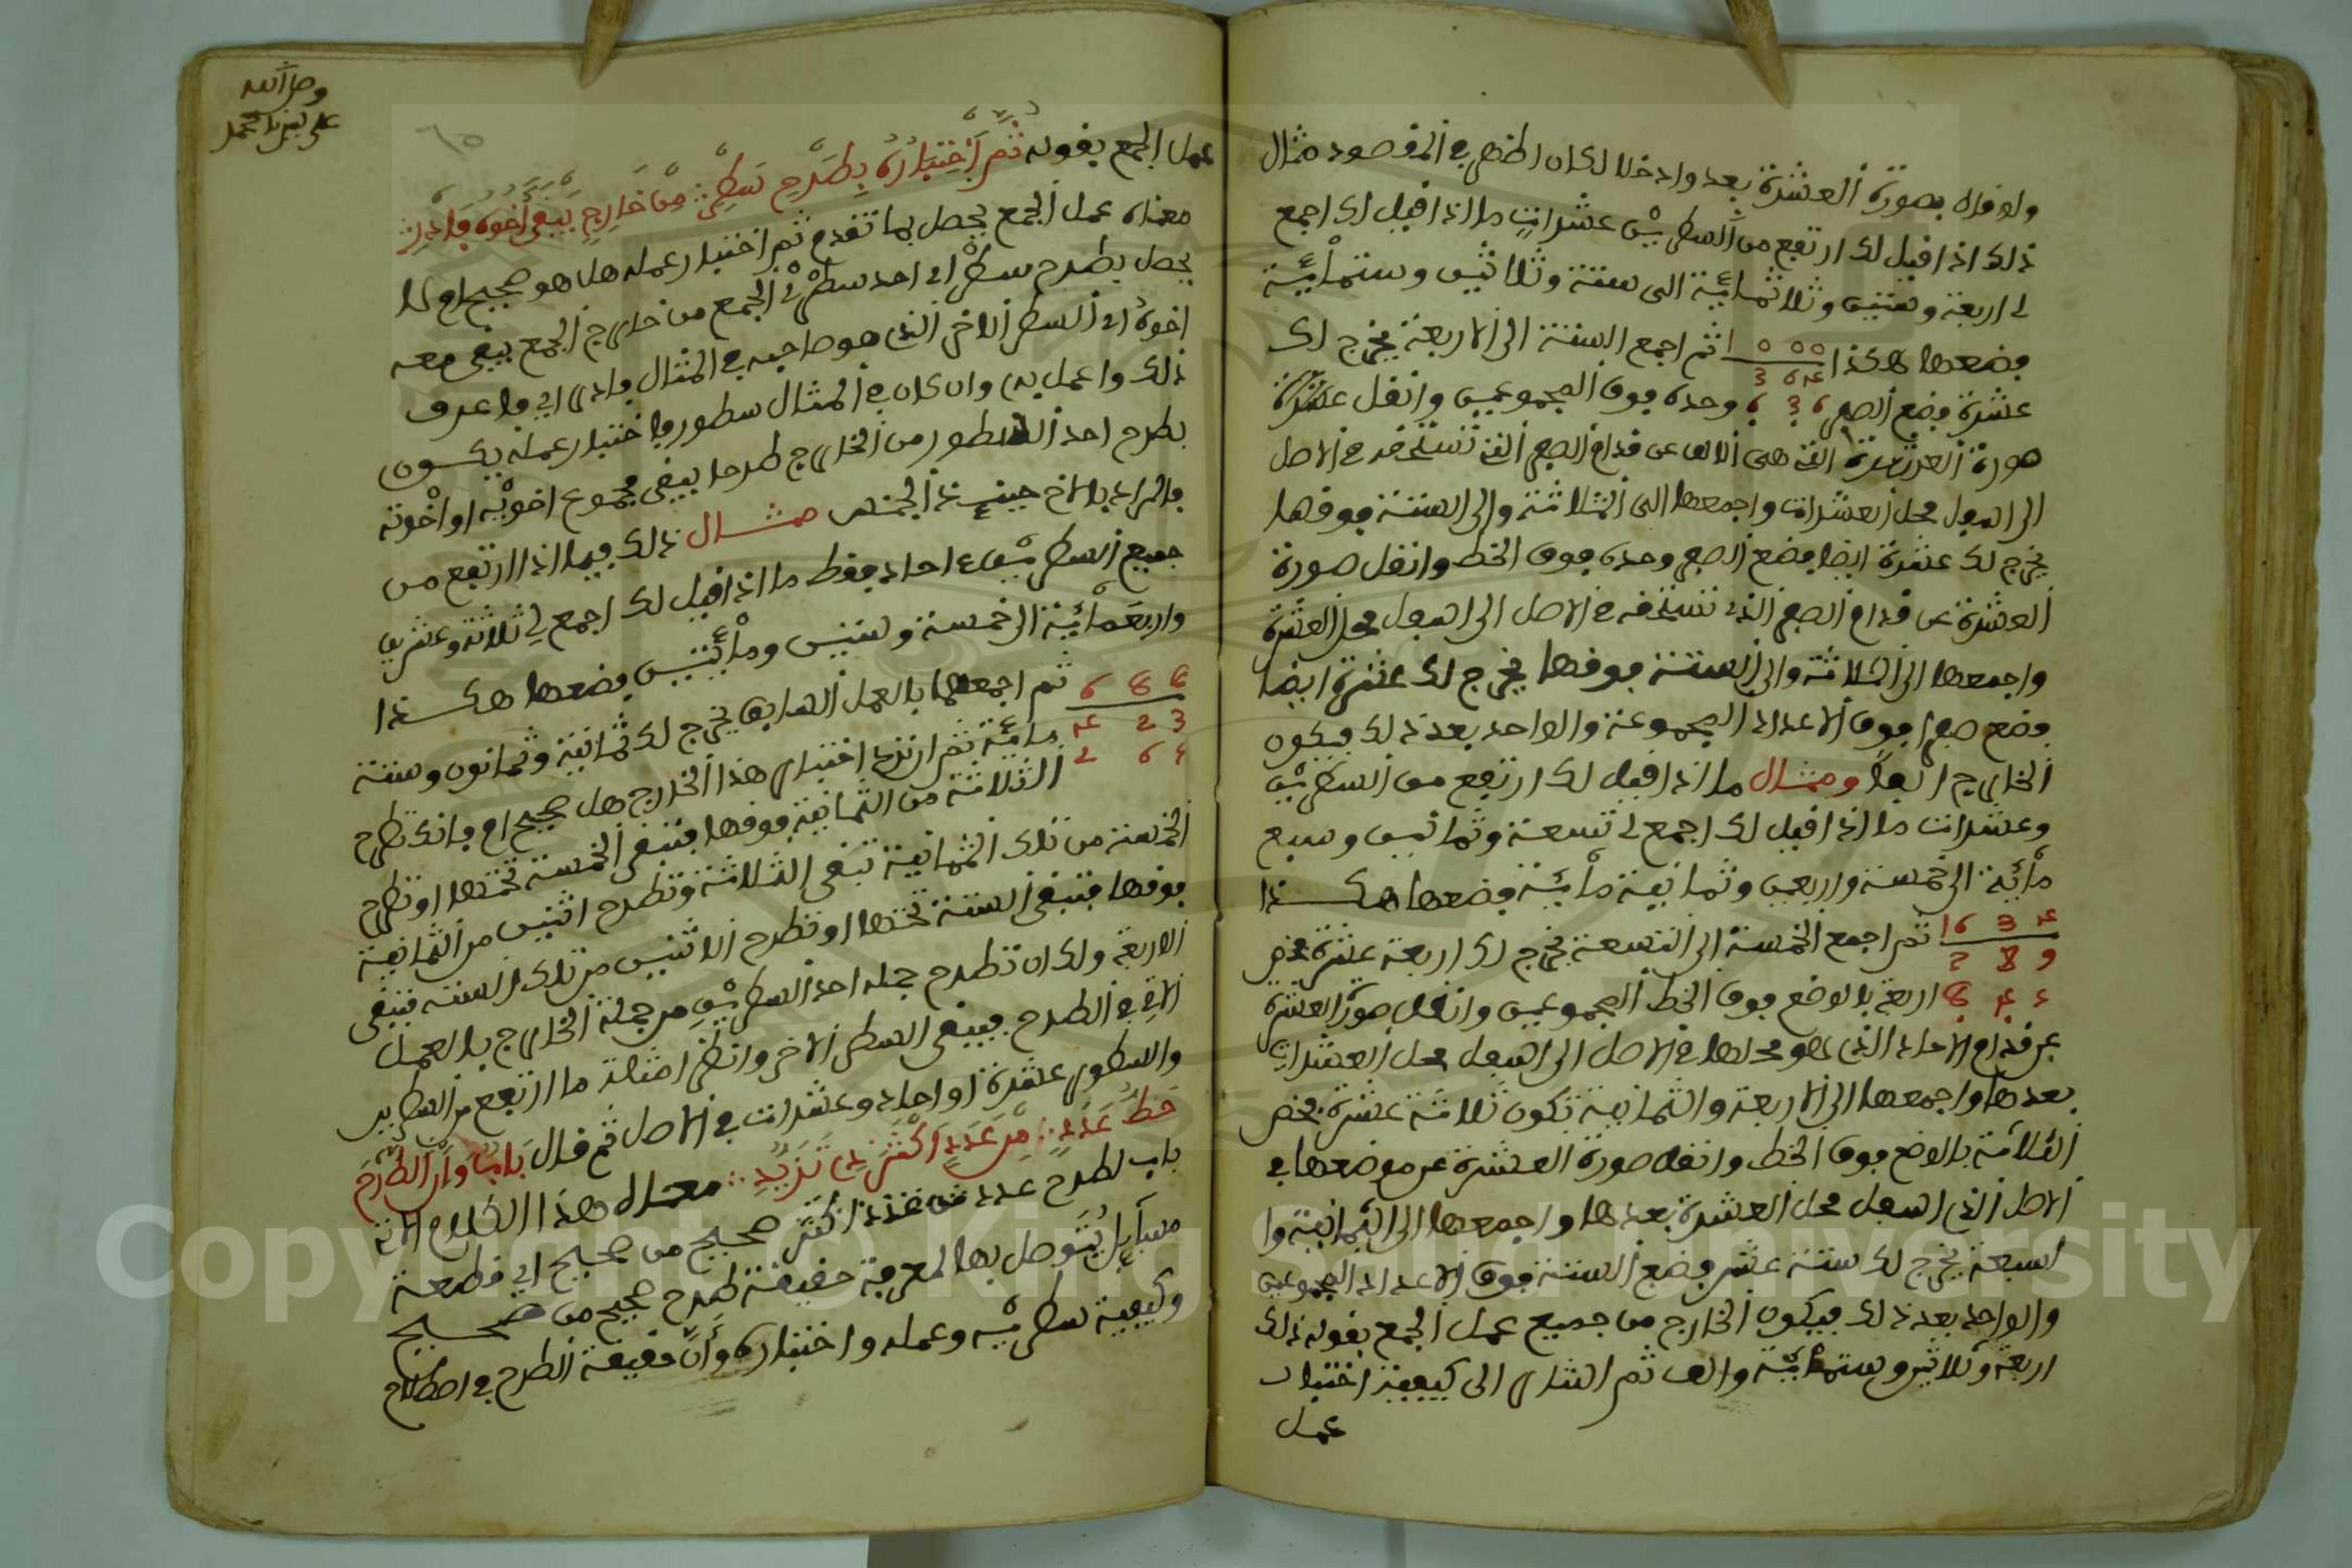 ولو قال بصورة العشرة بعد وادخلا لكان اظهر في المقصود مثال
ذلك اذا قيل لك ارتفع من السطرين عشرات ما اذا قيل لك اجمع
لي اربعة وستين وثلاثمائة الى ستة وثلاثين وستمائة
فضعها هكذا 1 0 0 0 ثم اجمع الستة الى الاربعة يخرج لك
3 6 4
عشرة فضع الصفر 6 3 6 وحده فوق المجموعين وانقل
صورة العشرة التي هي الالف عن قدام الصفر التي تستحقه في الاصل
الى اسفل محل العشرات واجمعها الى الثلاثة والى الستة فوقها
يخرج لك عشرة ايضا فضع الصفر وحده فوق الخط وانقل صورة
العشرة عن قدام الصفر الذي تستحقه في الاصل الى اسفل محل العشرة
واجمعها الى الثلاثة والى الستة فوقها يخرج لك عشرة ايضا
فضع صفرا فوق الاعداد المجموعة والواحد بعد ذلك فيكون
الخارج الفا ومثال ما اذا قيل لك ارتفع من السطرين
وعشرات ما اذا قيل لك اجمع لي تسعة وثمانين وسبع
مائة الى خمسة واربعين وثمانية مائة فضعها هكذا
1 6 3 4 ثم اجمع الخمسة الى التسعة يخرج لك اربعة عشرة فضع
7 8 9
اربعة بالوضع فوق الخط المجموعين وانقل صورة العشرة
عن قدام الاحاد الذي هو محلها في الاصل الى اسفل محل العشرات
بعدها واجمعها الى الاربعة والثمانية تكون ثلاثة عشرة فضع
الثلاثة بالوضع فوق الخط وانقل صورة العشرة عن موضعها في
الاصل الذي اسفل محل العشرة بعدها واجمعها الى الثمانية وا
لسبعة يخرج لك ستة عشر فضع الستة فوق الاعداد المجموعين
والواحد بعد ذلك فيكون الخارج من جميع عمل الجمع بقوله ذلك
اربعة وثلاثين وستمائة والف ثم اشار الى كيفية اختبار
عمل
وصلى الله
على سيدنا محمد
عمل الجمع بقوله ثم اختباره بطرح سطر من خارج يبقى اخوه فادر
معناه عمل الجمع يحصل بما تقدم ثم اختبار عمله هل هو صحيح ام لا
يحصل بطرح سطر اي احد سطري الجمع من خارج الجمع يبقى معه
اخوه اي السطر الاخر الذي هو صاحبه في المثال فادر اي فاعرف
ذلك واعمل به وان كان في المثال سطور فاختبار عمله يكون
بطرح احد السطور من الخارج طرحا يبقى مجموع اخويه او اخوته
فالمراد بالاخ حينئذ الجنس مثال ذلك فيما اذا ارتفع من
جميع السطرين احاد فقط ما اذا قيل لك اجمع لي ثلاثة وعشرين
واربعمائة الى خمسة وستين ومائتين فضعها هكذا
6 8 8 ثم اجمعها بالعمل السابق يخرج لك ثمانية وثمانون وستة
4 2 3 مائة ثم ان ترد اختبار هذا الخارج هل صحيح ام فانك تطرح
2 6 الثلاثة من الثمانية فوقها فتبقى الخمسة تحتها او تطرح
الخمسة من تلك الثمانية تبقى الثلاثة وتطرح اثنين من الثمانية
فوقها فتبقى الستة تحتها او تطرح الاثنين من تلك الستة فتبقى
الاربعة ولك ان تطرح جملة احد السطرين من جملة الخارج بالعمل
الاتي في الطرح فيبقى السطر الاخر وانظر امثلة ما ارتفع من السطرين
والسطور عشرة او احاد وعشرات في الاصل ثم قال باب وان الطرح
حط عدد من عدد اكثر تزيد معناه هذا الكلام الاتي
باب لطرح عدد من عدد اكثر صحيح من صحيح اي قطعة
مسايل يتوصل بها لمعرفة حقيقة طرح صحيح من صحيح
وكيفية سطريه وعمله واختباره وان حقيقة الطرح في اصطلاح
Copyright © King Saud University